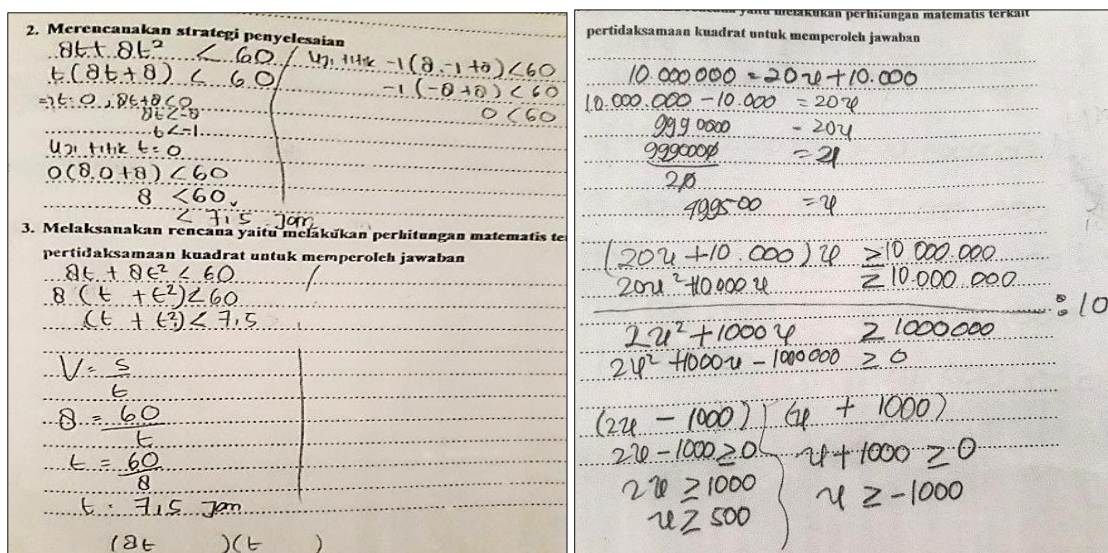 2. Merencanakan strategi penyelesaian
8t + 8t² < 60
t(8t+8) < 60
=> t = 0, 8t+8<0
8t<-8
t<-1
Uji titik t=0
0(8.0+8) < 60
8 < 60,
< 7,5 Jam
Uji titik -1(8.-1+8)<60
-1(-8+8) < 60
0 < 60
3. Melaksanakan rencana yaitu melakukan perhitungan matematis te
pertidaksamaan kuadrat untuk memperoleh jawaban
8t + 8t² < 60
8(t + t²)<60
(t + t²) < 7,5
V = s/t
8 = 60/t
t = 60/8
t = 7,5 Jam
(8t )(t )
yaitu melakukan perhitungan matematis terkait
pertidaksamaan kuadrat untuk memperoleh jawaban
10.000.000 = 20x + 10.000
10.000.000 - 10.000 = 20x
9990000 = 20x
9990000/20 = x
499500 = x
(20x + 10.000)x ≥ 10.000.000
20x² + 10.000x ≥ 10.000.000
: 10
2x² + 1000x ≥ 1000000
2x² + 1000x - 1000000 ≥ 0
(2x - 1000) (x + 1000)
2x - 1000 ≥ 0
2x ≥ 1000
x ≥ 500
x + 1000 ≥ 0
x ≥ -1000